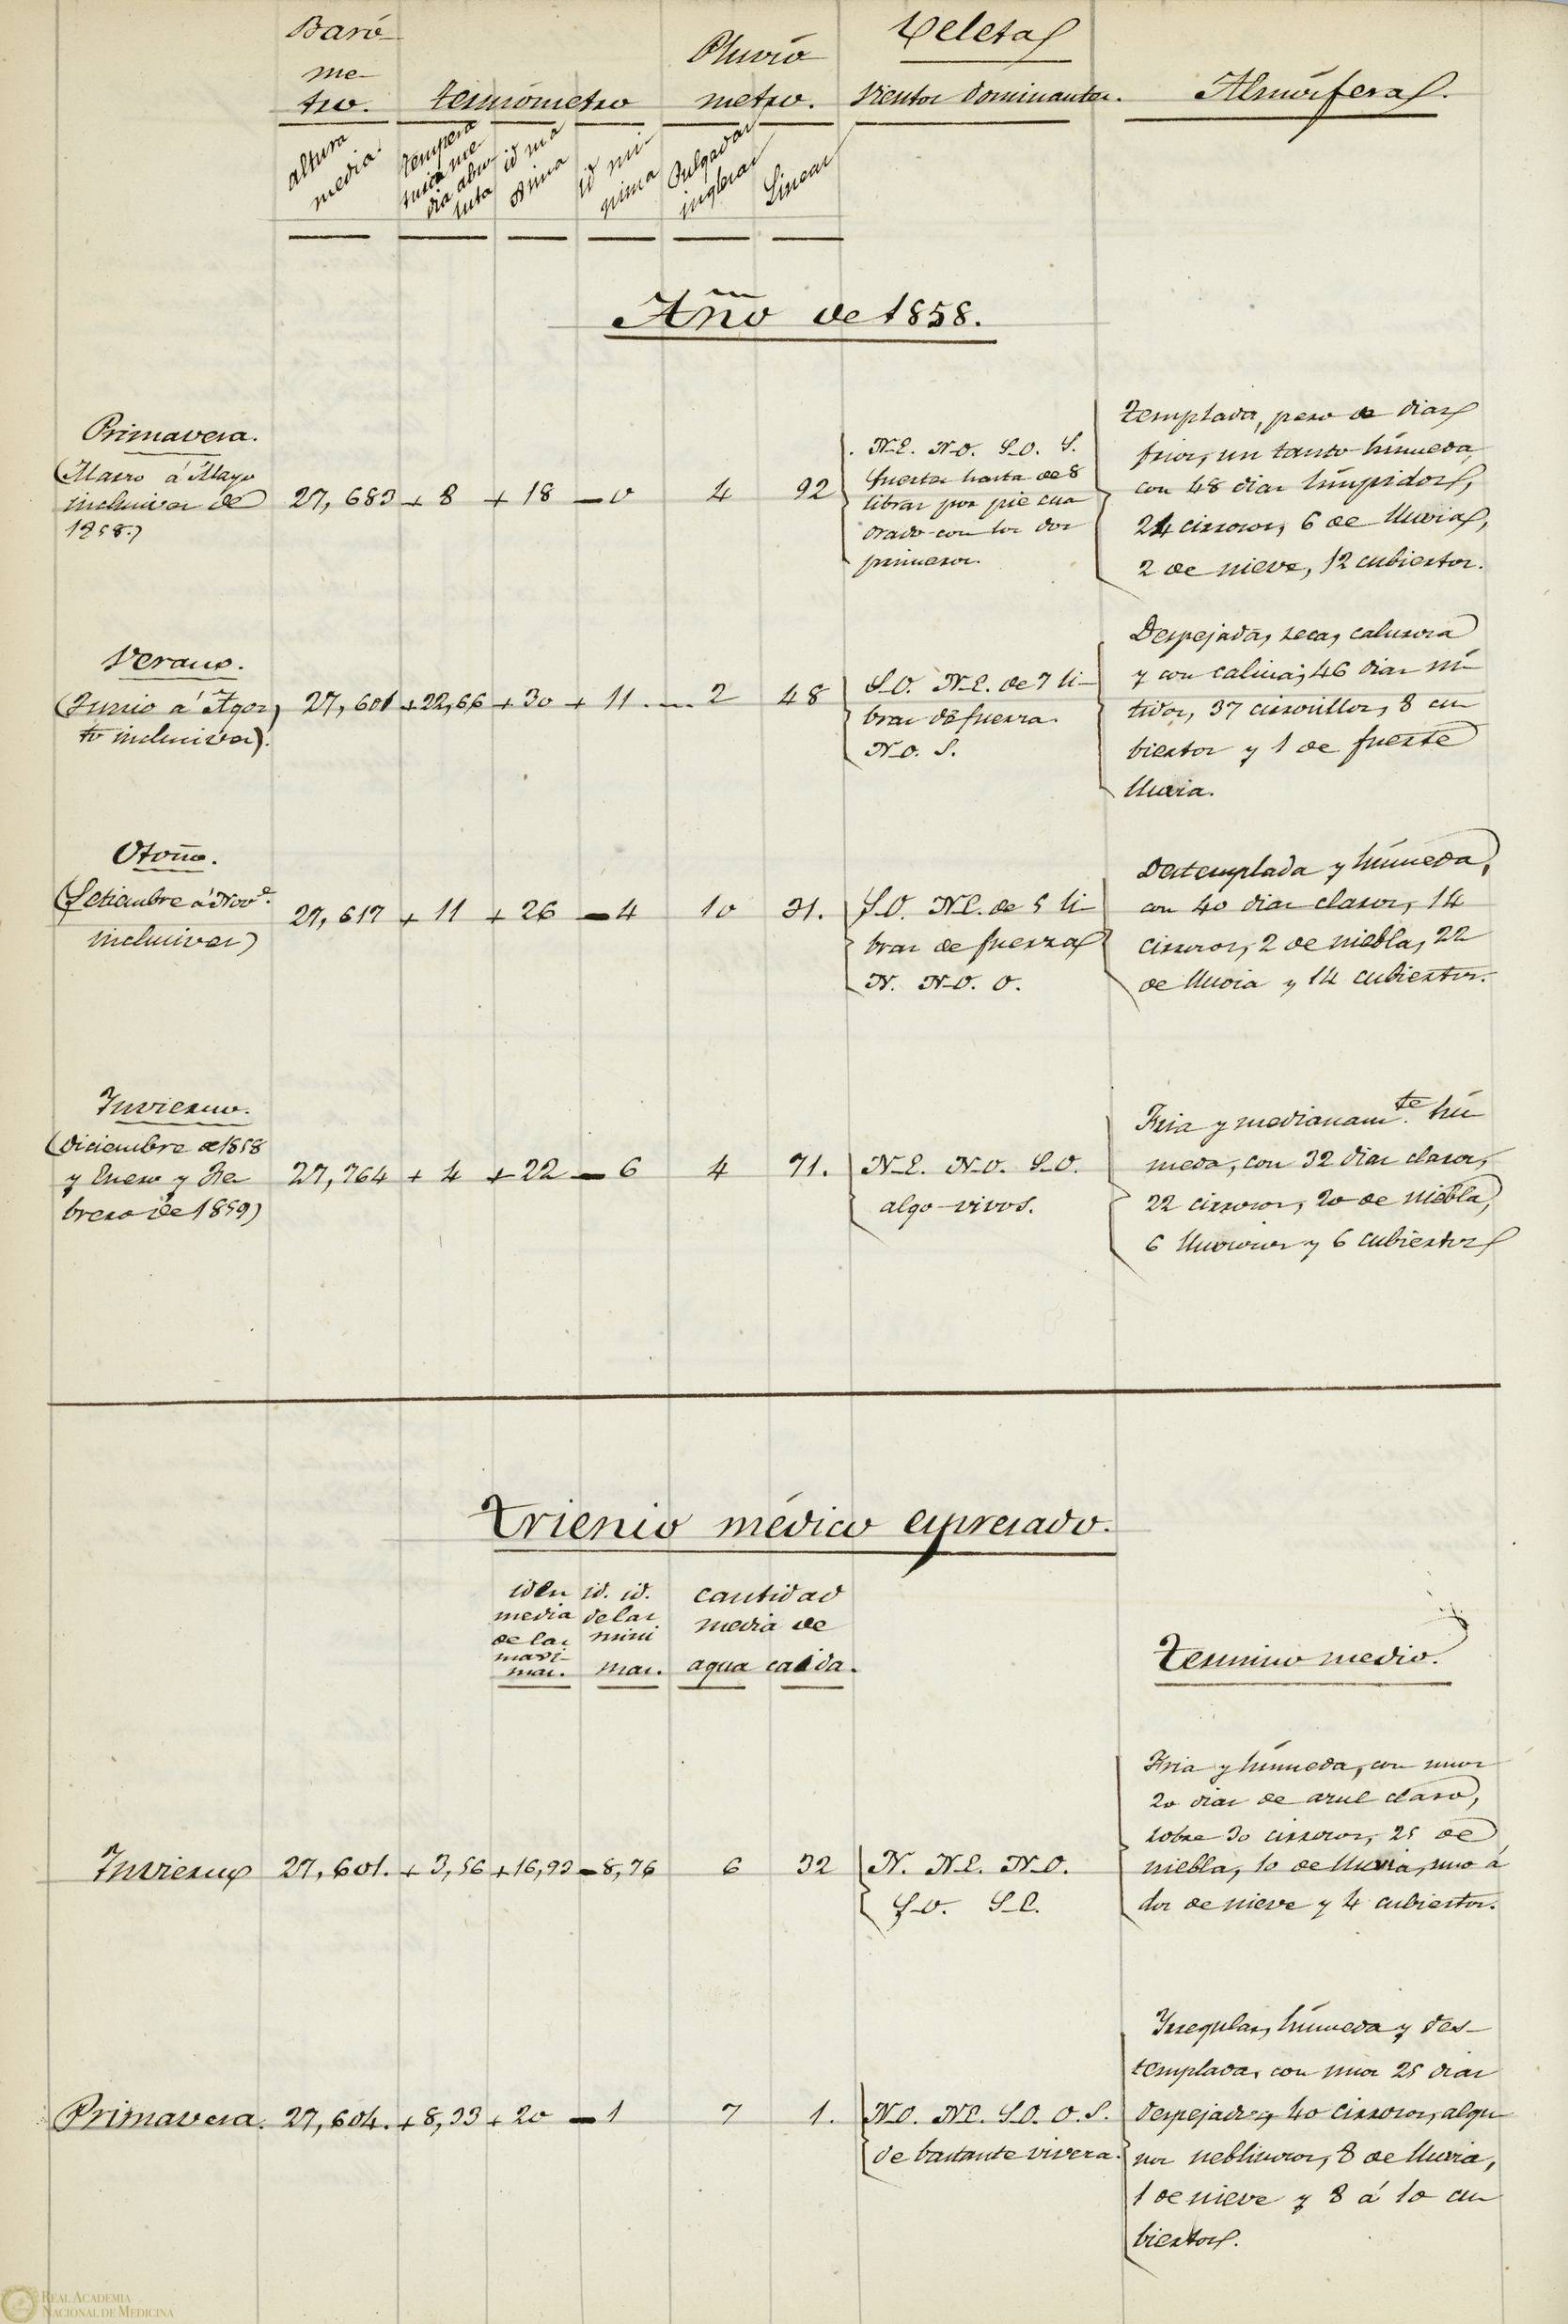 Baró-
me-
tro. termómetro Pluvió
metro. Veletas
Vientos dominantes. Atmósfera.
altura
media.
tempera
tura me-
dia abso-
luta
id má
xima
id mí-
nima
Pulgadas
inglesas
Lineas
Año de 1858.
Primavera.
(Marzo á Mayo
inclusives de
1858.)
27,683 + 8 + 18 - 0 4 92
N-E. N-O. S-O. S.
fuertes hasta de 8
libras por pie cua
drado con los dos
primeros.
templada, pero de dias
frios, un tanto húmeda,
con 48 dias límpidos,
24 cirrosos, 6 de lluvia,
2 de nieve, 12 cubiertos.
Verano.
(Junio á Agos,
to inclusives).
27,601 + 22,66 + 30 + 11 .... 2 48
S-O. N-E. de 7 li-
bras de fuerza.
N-O. S.
Despejada, seca, calurosa
y con calina; 46 dias ní-
tidos, 37 cirrosillos, 8 cu
biertos y 1 de fuerte
lluvia.
Otoño.
(Setiembre á Nov.e
inclusives)
27,617 + 11 + 26 - 4 10 31.
S-O. N-E. de 5 li-
bras de fuerza
N. N-O. O.
Destemplada y húmeda,
con 40 dias claros, 14
cirrosos, 2 de niebla, 22
de lluvia y 14 cubiertos.
Invierno.
(Diciembre de 1858
y Enero y Fe
brero de 1859)
27,764 + 4 + 22 - 6 4 71.
N-E. N-O. S-O.
algo vivos.
Fria y medianam.te hú
meda, con 32 dias claros,
22 cirrosos, 20 de niebla,
6 lluviosos y 6 cubiertos
trienio médico espresado.
id en
media
de las
maxi-
mas.
id. id.
de las
mini
mas.
cantidad
media de
agua caida.
termino medio.
Invierno 27,601. + 3,56 + 16,93 - 8,76 6 32
N. N-E. N-O.
S-O. S-E.
Fria y húmeda, con unos
20 dias de azul claro,
sobre 30 cirrosos, 25 de
niebla, 10 de lluvia, uno á
dos de nieve y 4 cubiertos.
Primavera. 27,604. + 8,33 + 20 - 1 7 1.
N-O. N-E. S-O. O. S.
de bastante viveza.
Irregular, húmeda y des-
templada, con unos 25 dias
despejados, 40 cirrosos, algu
nos neblinosos, 8 de lluvia,
1 de nieve y 8 á 10 cu
biertos.
REAL ACADEMIA
NACIONAL DE MEDICINA